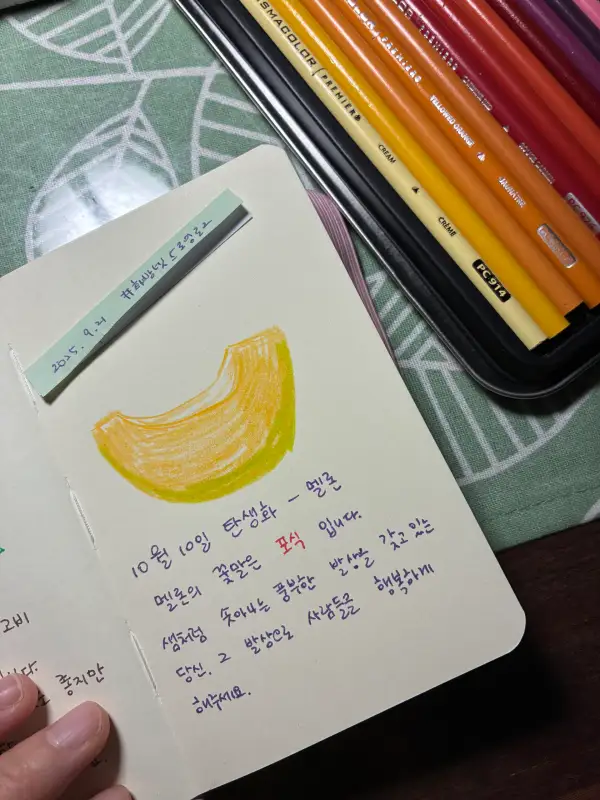 2025. 9. 21
10월 10일 탄생화 - 멜론
멜론의 꽃말은 포식 입니다.
샘처럼 솟아나는 풍부한 발상을 갖고 있는
당신. 그 발상으로 사람들을 행복하게
해주세요.
고비
니다.
좋지만
PRISMACOLOR PREMIER
CREAM
CRÈME
PC914
YELLOWED ORANGE